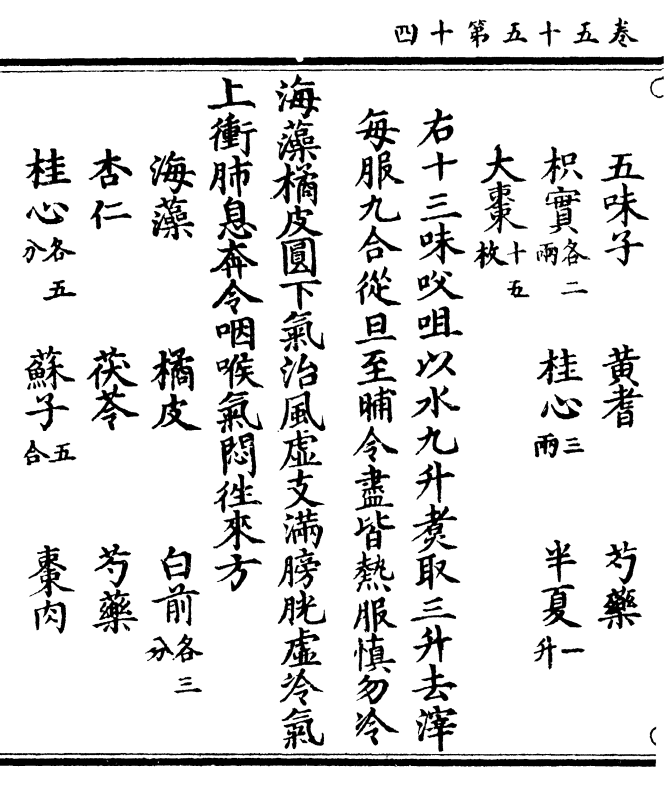 卷五十五第十四
五味子　黃耆　芍藥
枳實各二兩　桂心三兩　半夏一升
大棗十五枚
右十三味㕮咀以水九升煑取三升去滓
每服九合從旦至晡令盡皆熱服慎勿冷
海藻橘皮圓下氣治風虛支滿膀胱虛冷氣
上衝肺息奔令咽喉氣悶徃來方
海藻　橘皮　白前各三分
杏仁　茯苓　芍藥
桂心各五分　蘇子五合　棗肉